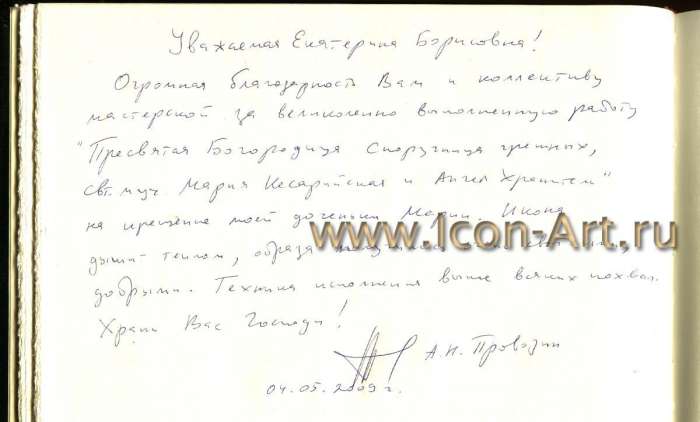 Уважаемая Екатерина Борисовна!
Огромная благодарность Вам и коллективу
мастерской за великолепно выполненную работу
"Пресвятая Богородица Споручница грешных,
Свт. муч. Мария Кесарийская и Ангел Хранитель"
на крещение моей доченьки Марии. Икона
www.Icon-Art.ru
дышит теплом, образа
добрыми. Техника исполнения выше всяких похвал.
Храни Вас Господи!
А.Н.
04.05.2009 г.